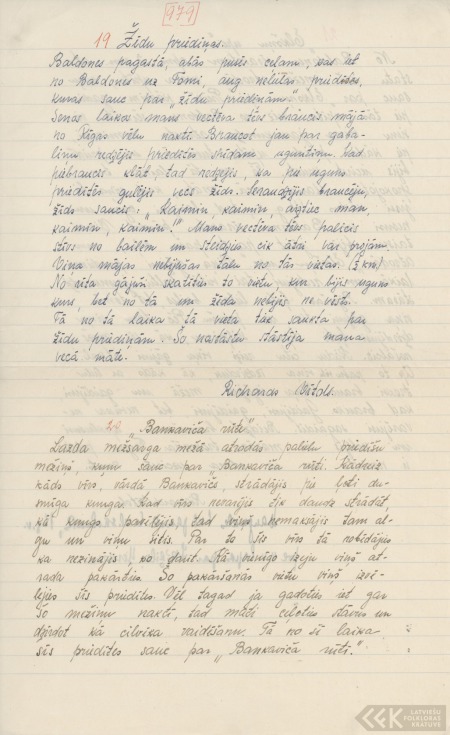 979
19 Židu priediņas.
Baldones pagastā, abās pusēs ceļam, kas iet
no Baldones uz Tomi, aug nelielas priedītes,
kuras sauc par „židu priediņām."
Senos laikos mans vectēva tēvs braucis mājā
no Rīgas vēlu naktī. Braucot jau par gaba-
liņu redzējis priedītēs sīkdam uguntiņu. Kad
piebraucis klāt, tad redzējis, ka pie uguns
priedītēs gulējis vecs žids. Ieraudzījis braucēju,
žids saucis: „Kaimiņ, kaimiņ, aiztiec man,
kaimiņ, kaimiņ!" Mans vectēva tēvs palicis
stīvs no bailēm un steidzies cik ātri var projām.
Viņa mājas nebijušas tālu no tās vietas. (½ km)
No rīta gājuši skatīties to vietu, kur bijis uguns
kurs, bet no tā un žida nebijis ne vēsts.
Tā no tā laika tā vieta tiek saukta par
židu priediņām. Šo nostāstu stāstīja mana
vecā māte.
Richards Vītols.
20 „Bankaviča rūte"
Lazda mežsarga mežā atrodas palielu priedīšu
mežiņš, kuņu sauc par „Bankaviča rūti. Kādreiz
kāds vīrs, vārdā Bankavičs, strādājis pie ļoti du-
smīga kunga. Kad vīrs nevarējis tik daudz strādāt,
kā kungs pavēlējis, tad viņš nemaksājis tam al-
gu un viņu sitis. Par to šis vīrs tā nobēdājies
ka nezinājis, ko darīt. Kā vienīgo izeju viņš at-
rada pakarties. Šo pakāršanās vietu viņš izvē-
lējies šīs priedītes. Vēl tagad ja gadoties iet gar
šo mežiņu naktī, tad mati ceļoties stāvus un
dzirdot kā cilvēka vaidēšanu. Tā no šī laika
šīs priedītes sauc par „Bankaviča rūti."
LATVIEŠU
FOLKLORAS
KRĀTUVE